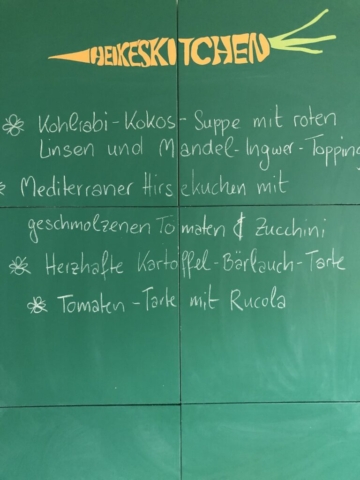 HEIKESKITCHEN
Kohlrabi-Kokos-Suppe mit roten
Linsen und Mandel-Ingwer-Topping
Mediterraner Hirsekuchen mit
geschmolzenen Tomaten & Zucchini
Herzhafte Kartoffel-Bärlauch-Tarte
Tomaten-Tarte mit Rucola